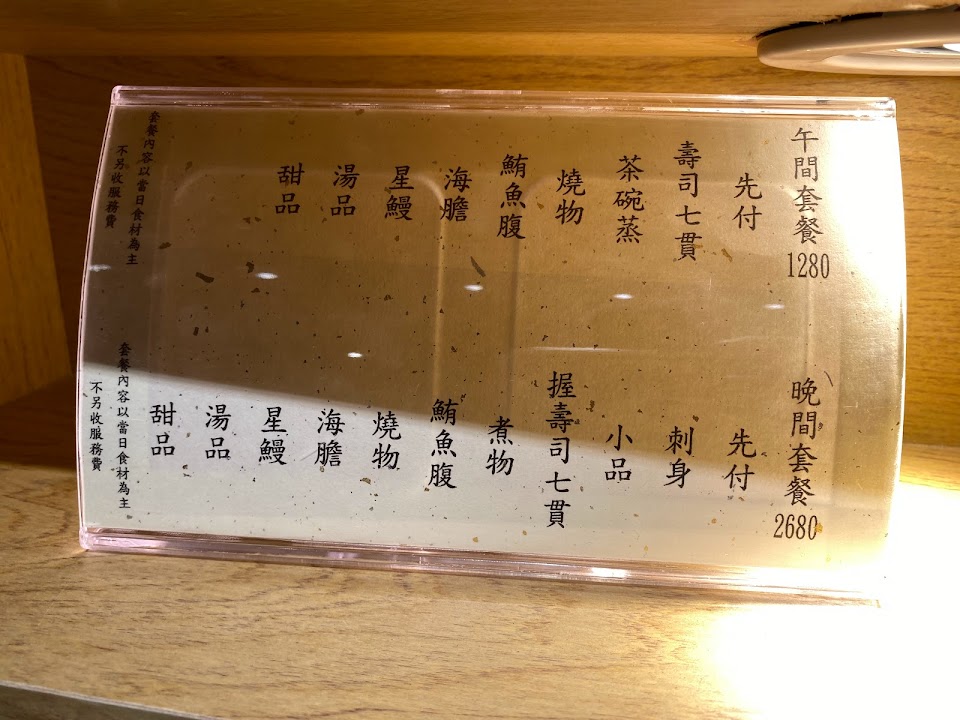 午間套餐
1280
先付
壽司七貫
茶碗蒸
燒物
鮪魚腹
海膽
星鰻
湯品
甜品
套餐內容以當日食材為主
不另收服務費
晚間套餐
2680
先付
刺身
小品
握壽司七貫
煮物
鮪魚腹
燒物
海膽
星鰻
湯品
甜品
套餐內容以當日食材為主
不另收服務費